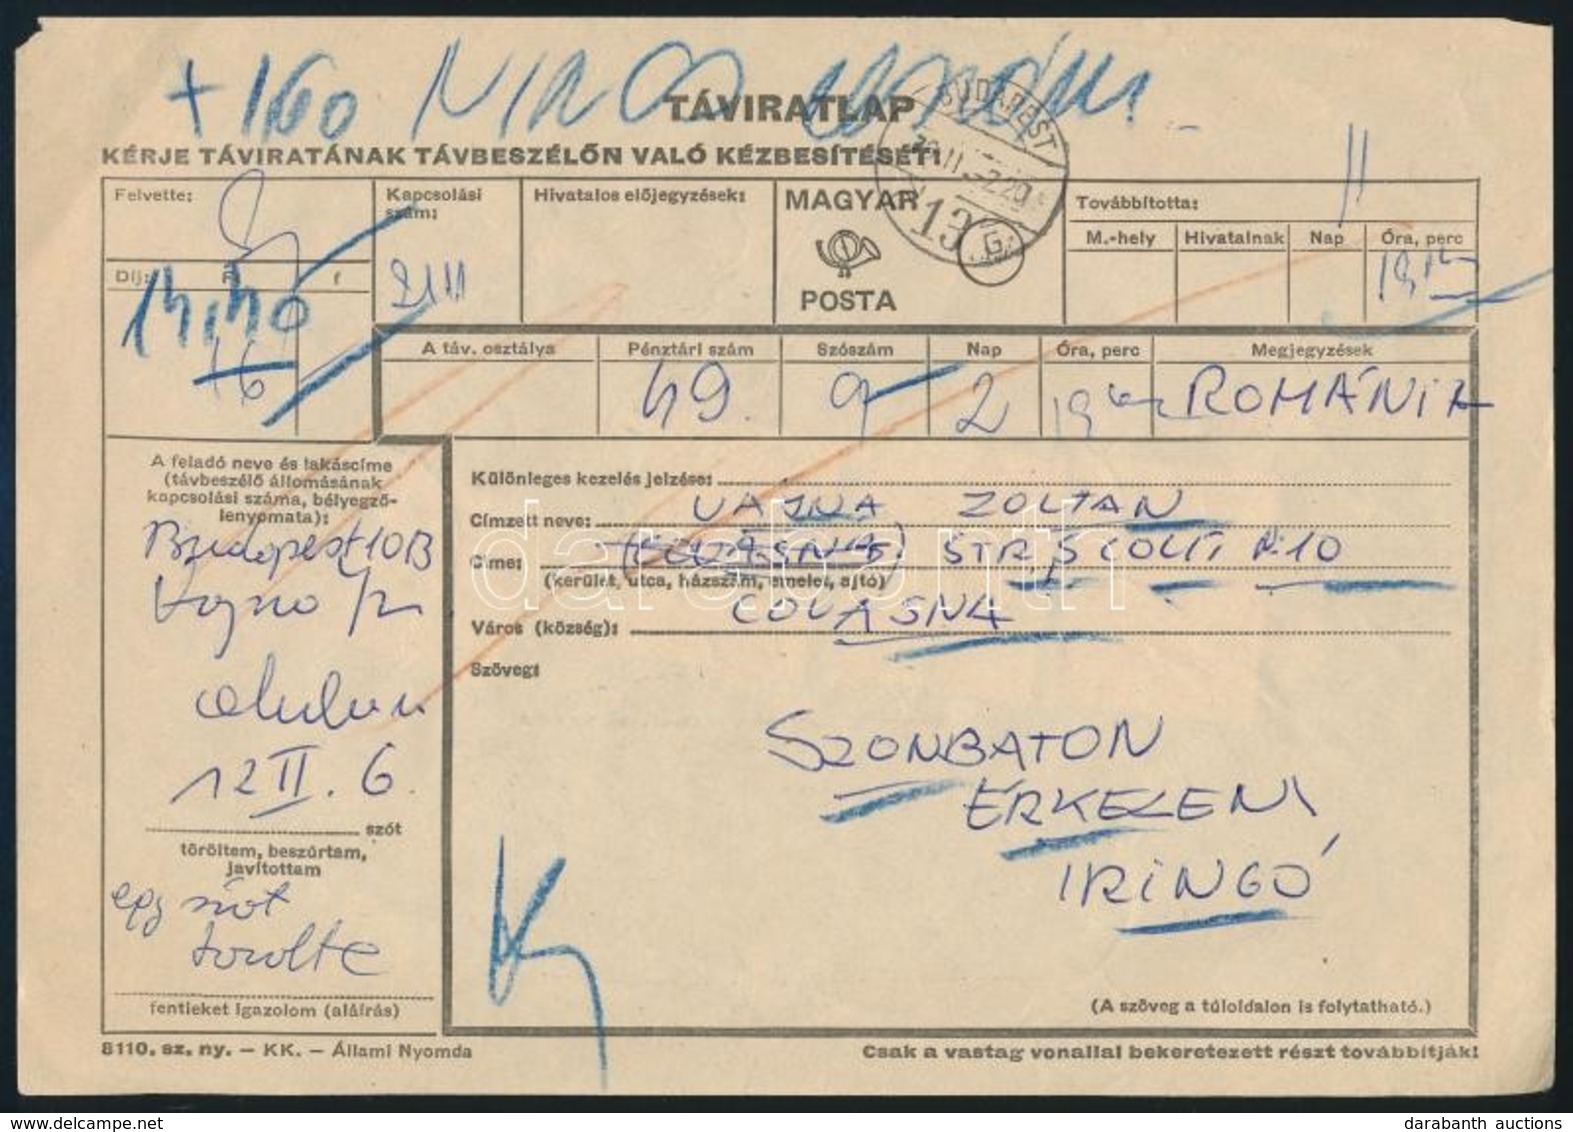 + 160 NINCS
TÁVIRATLAP
KÉRJE TÁVIRATÁNAK TÁVBESZÉLŐN VALÓ KÉZBESÍTÉSÉT!
BUDAPEST
13
G.
Felvette:
Kapcsolási szám:
Hivatalos előjegyzések:
MAGYAR
POSTA
Továbbította:
M.-hely
Hivatalnak
Nap
Óra, perc
Díj:
f
+6
A táv. osztálya
Pénztári szám
Szószám
Nap
Óra, perc
Megjegyzések
49
9
2
ROMÁNIA
A feladó neve és lakáscíme
(távbeszélő állomásának
kapcsolási száma, bélyegző-
lenyomata):
Budapest
12 II. 6.
szót
töröltem, beszúrtam,
javítottam
egy szót
törölte
fentieket igazolom (aláírás)
Különleges kezelés jelzése:
Címzett neve: VAJNA ZOLTAN
Címe: (COVASNA) STR. SCOLII N. 10
(kerület, utca, házszám, emelet, ajtó)
Város (község): COVASNA
Szöveg:
SZONBATON
ÉRKEZEM
IRINGÓ
(A szöveg a túloldalon is folytatható.)
8110. sz. ny. — KK. — Állami Nyomda
Csak a vastag vonallal bekeretezett részt továbbítják!
darabanth
darabanth auctions